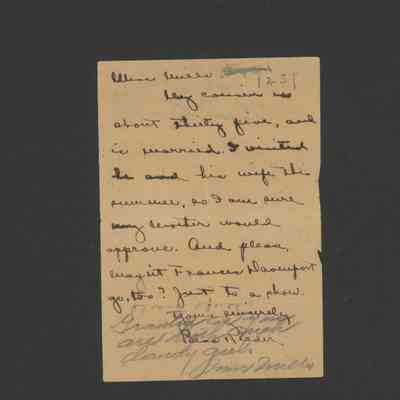 Miss Mills 1231
My cousin is
about thirty five, and
is married. I visited
he and his wife this
summer, so I am sure
my mother would
approve. And please,
mayn't Frances Davenport
go, too? Just to a show.
Yours sincerely,
Granted
are
dandy girls
Miss Mills